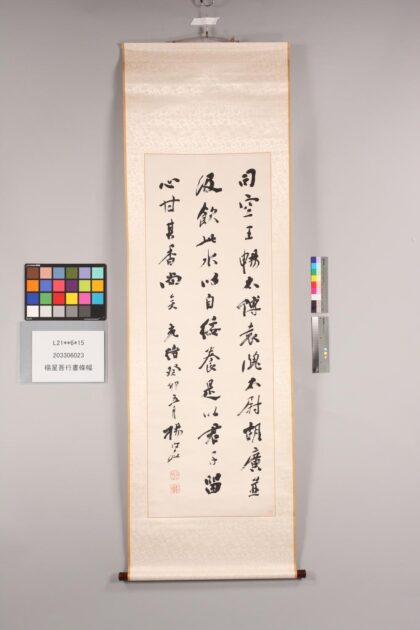 司空王暢太傅袁隗太尉胡廣並
汲飲此水以自綏養是以君子留
心甘其香尚矣 光緒癸卯五月 楊守敬
L21**6*15
203306023
楊星吾行書條幅